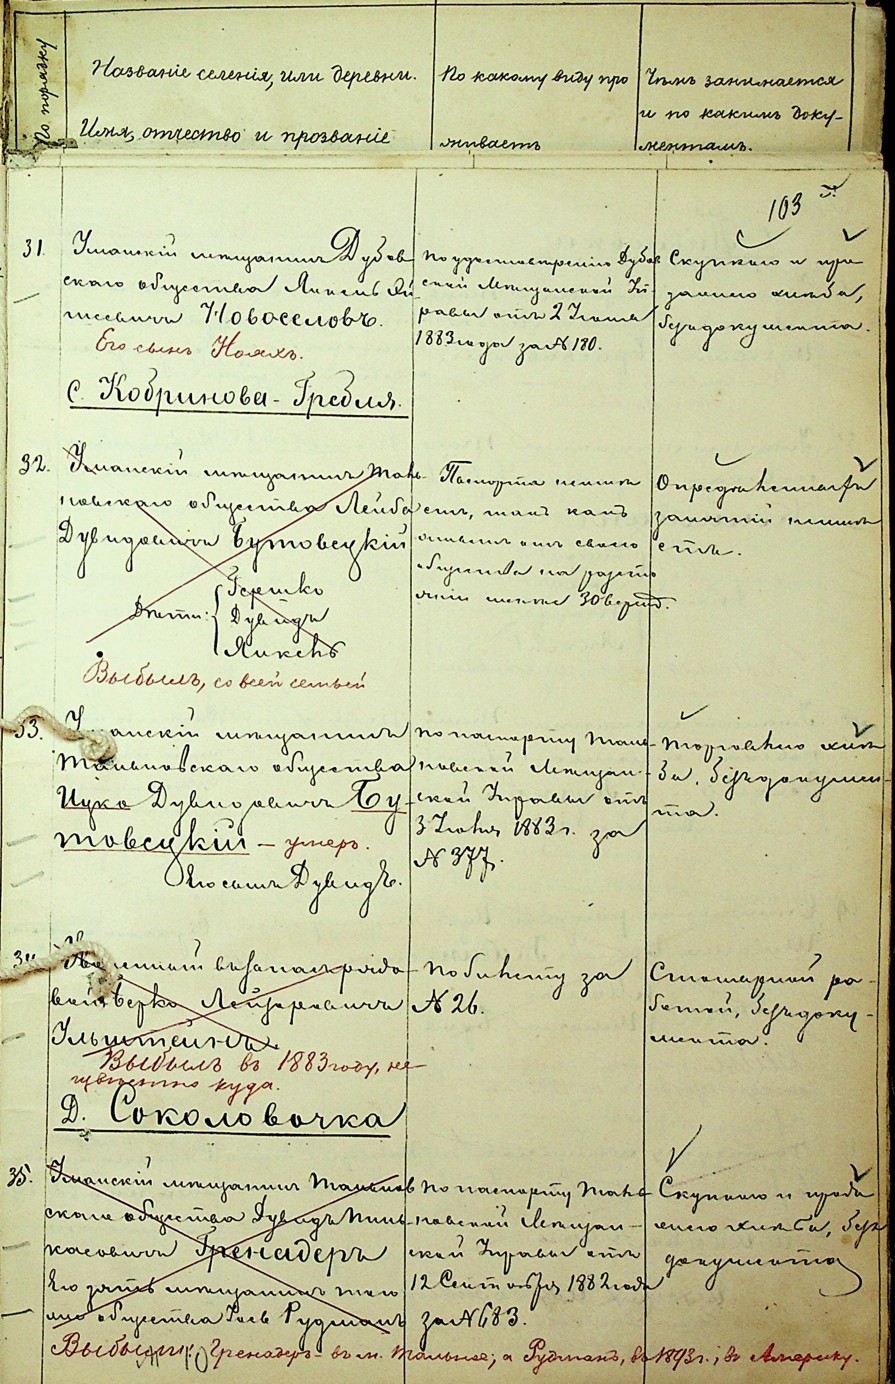 По порядку
Названіе селенія, или деревни.
Имя, отчество и прозваніе
По какому виду про
живаетъ
Чѣмъ занимается
и по какимъ доку-
ментамъ.
103
31.
Уманскій мещанинъ Дубов-
скаго общества Янкель
Новоселовъ.
Его сынъ Нояхъ.
по удостовѣренію Дубов
ской Мещанской Уп-
равы отъ 2
1883 года за № 180.
Скупкаю и про
дажею хлѣба,
безъ документа.
с. Кобринова-Гребля.
32.
Уманскій мещанинъ Таль-
новскаго общества Лейба
Дувидовичъ Бутовецкій
Дѣти: Гершко
Дувидъ
Янкель
Выбылъ, со всей семьей
Паспорта неимѣ
етъ, такъ какъ
отъ своего
общества на разсто
яніи менѣе 30 верстъ.
Опредѣленныхъ
занятій неимѣ
етъ.
33.
Уманскій мещанинъ
Тальновскаго общества
Ицко Дувидовичъ Бу-
товецкій – умеръ.
Его сынъ Дувидъ.
по паспорту Таль-
новской Мещан-
ской Управы отъ
3 Іюня 1883 г. за
№ 377.
Торговлею хлѣ
ба, безъ докумен-
та.
34
Берко Лейзеровичъ
Ильштейнъ.
Выбылъ въ 1883 году, не-
извѣстно куда.
по билету за
№ 26.
Столярной ра-
ботой, безъ доку-
мента.
Д. Соколовочка
35.
Уманскій мещанинъ Тальнов
скаго общества Дувидъ Пинь-
касовичъ Гренадеръ
Его зять мещанинъ того
же общества Рудманъ
Выбыли: Гренадеръ – въ м. Тальное; а Рудманъ, въ 1893 г.; въ Америку.
по паспорту Таль-
новской Мещан-
ской Управы отъ
12 Сентября 1882 года
за № 683.
Скупкаю и прода
жею хлѣба, безъ
документа